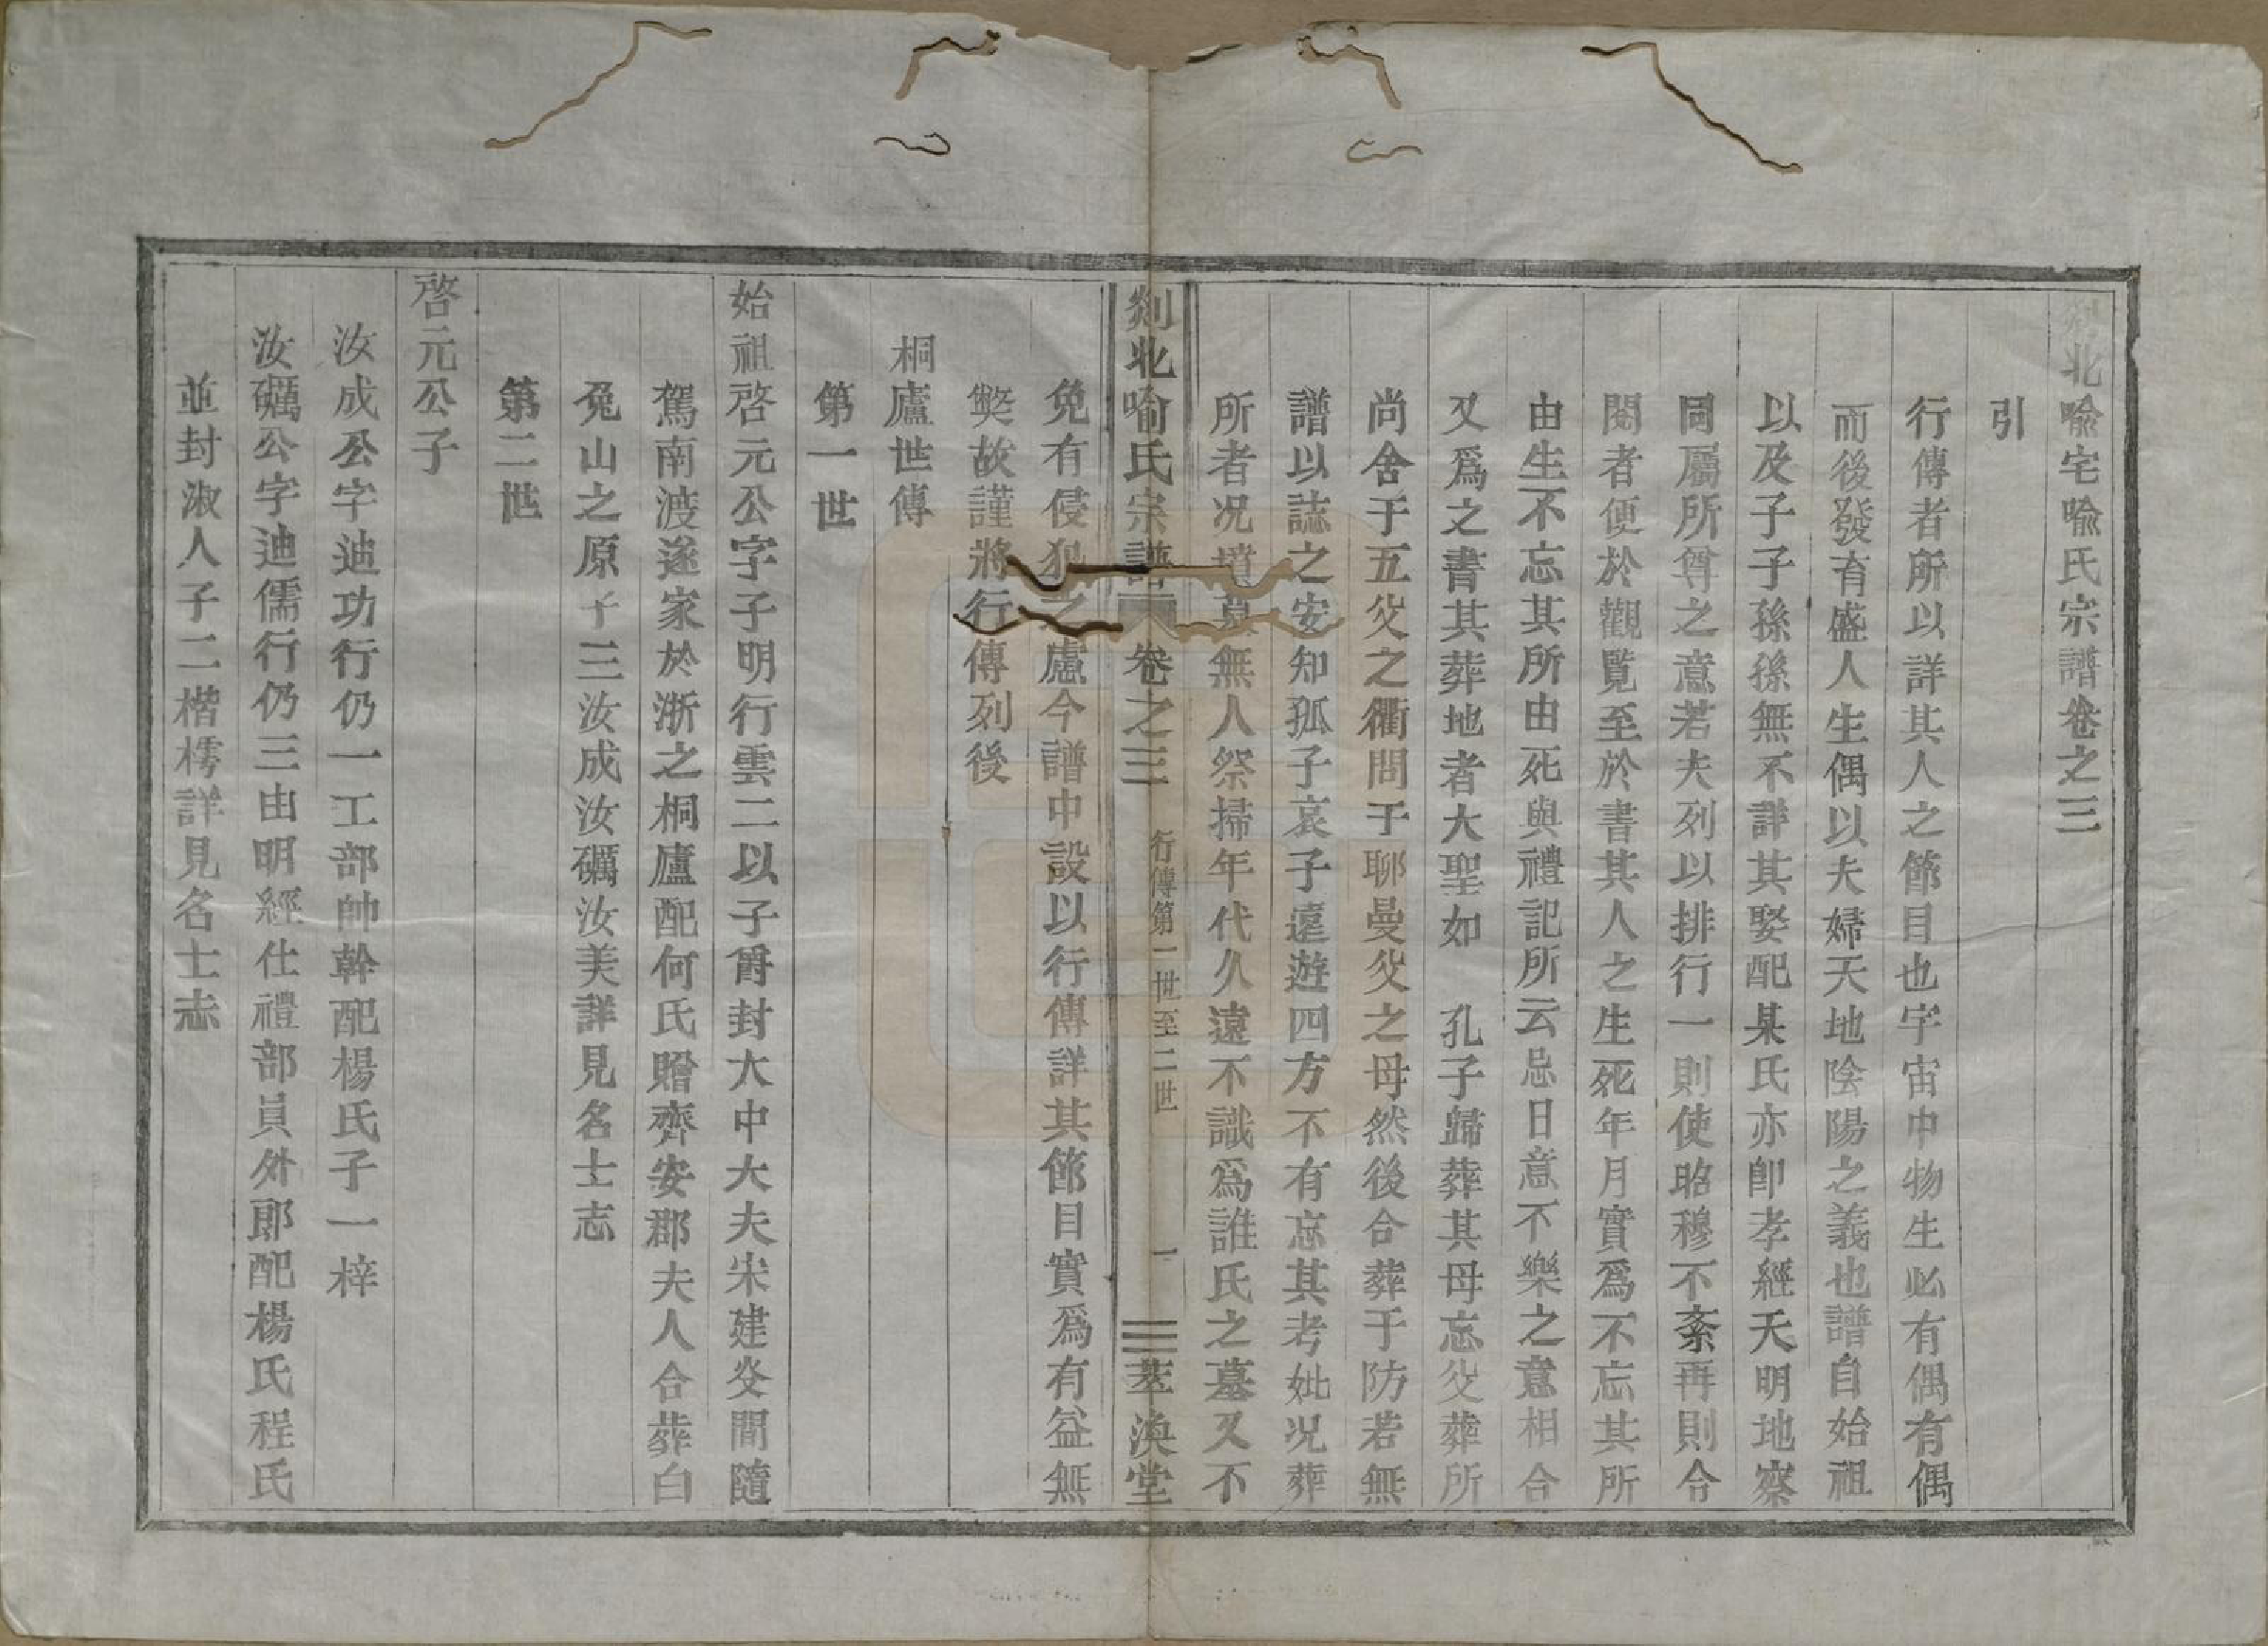 剡北喩宅喩氏宗譜卷之三
引
行傳者所以詳其人之節目也宇宙中物生必有偶有偶
而後發育盛人生偶以夫婦天地陰陽之義也譜自始祖
以及子子孫孫無不詳其娶配某氏亦卽孝經天明地察
同屬所尊之意若夫列以排行一則使昭穆不紊再則令
閱者便於觀覽至於書其人之生死年月實爲不忘其所
由生不忘其所由死與禮記所云忌日意不樂之意相合
又爲之書其葬地者大聖如 孔子歸葬其母忘父葬所
尚舍于五父之衢問于聊曼父之母然後合葬于防若無
譜以誌之安知孤子哀子遠遊四方不有忘其考妣况葬
所者况墳墓無人祭掃年代久遠不識爲誰氏之墓又不
剡北喩氏宗譜 卷之三 行傳第一世至二世 一 萃渙堂
免有侵犯之慮今譜中設以行傳詳其節目實爲有益無
獘故謹將行傳列後
桐廬世傳
第一世
始祖啓元公字子明行雲二以子爵封大中大夫宋建炎間隨
駕南渡遂家於浙之桐廬配何氏贈齊安郡夫人合葬白
兔山之原子三汝成汝礪汝美詳見名士志
第二世
啓元公子
汝成公字迪功行仍一工部帥幹配楊氏子一梓
汝礪公字迪儒行仍三由明經仕禮部員外郎配楊氏程氏
並封淑人子二楷樗詳見名士志